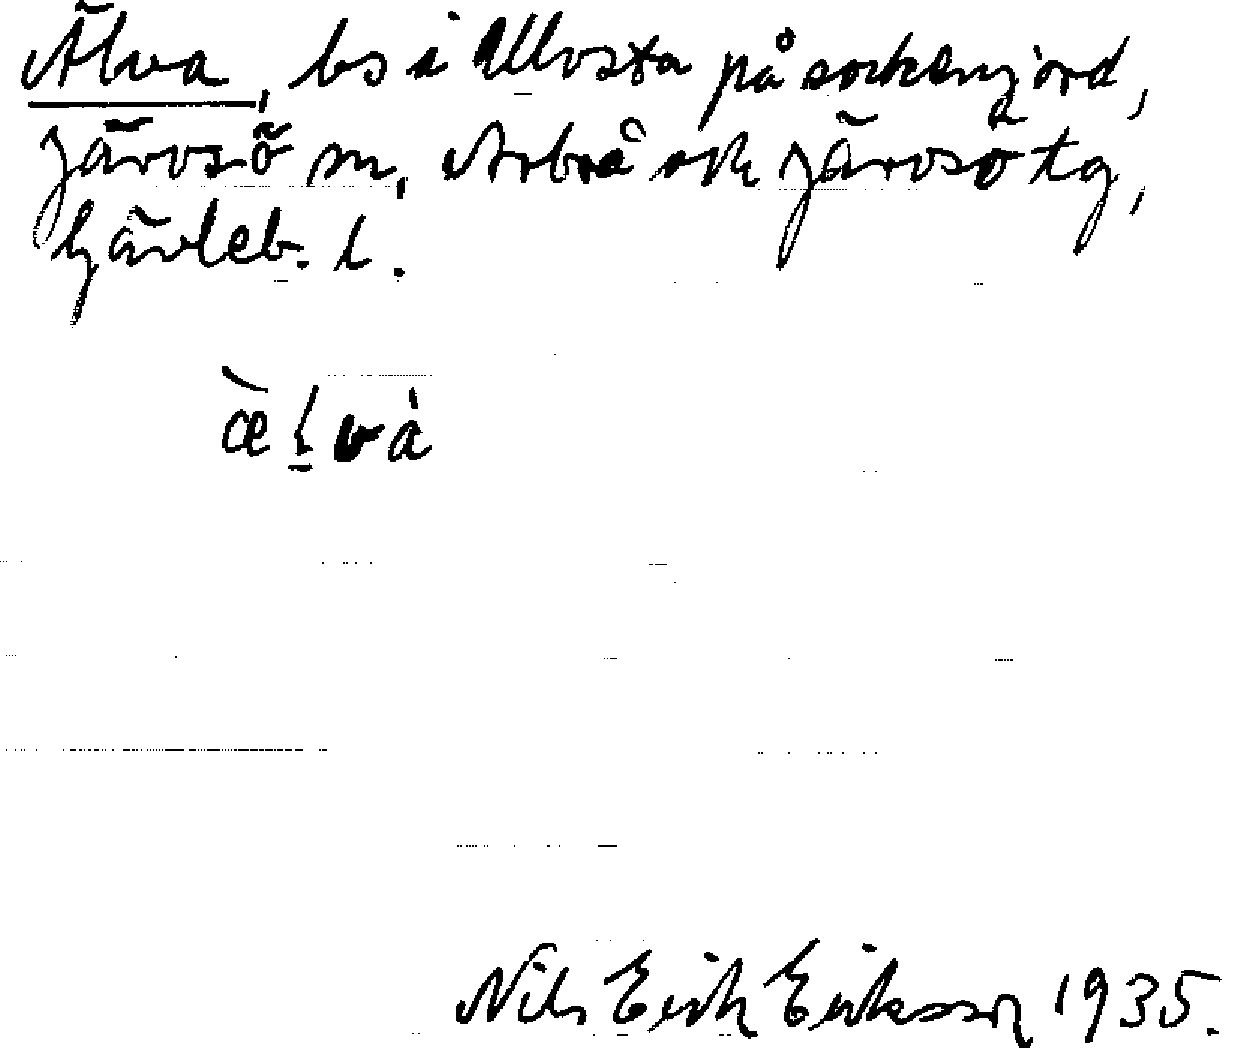 Älva, bs i Ullvsta på sockenjord,
Järvsö sn, Arbrå och Järvsö tg,
Gävleb. l.
æ̀ḷvà
Nils Erik Eriksson 1935.